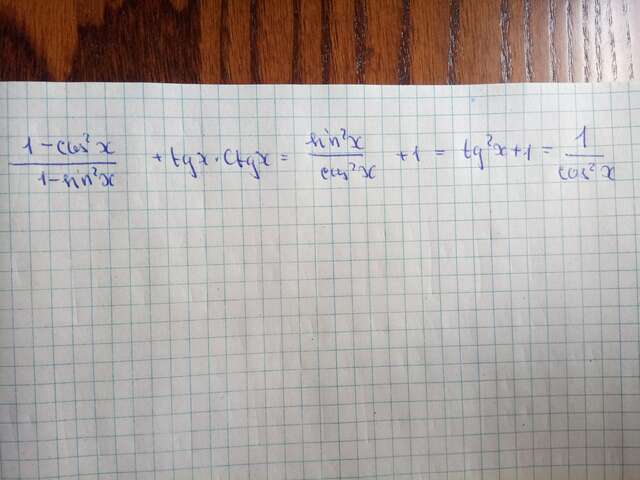 1-cos²x / 1-sin²x + tgx·ctgx = sin²x / cos²x + 1 = tg²x+1 = 1 / cos²x